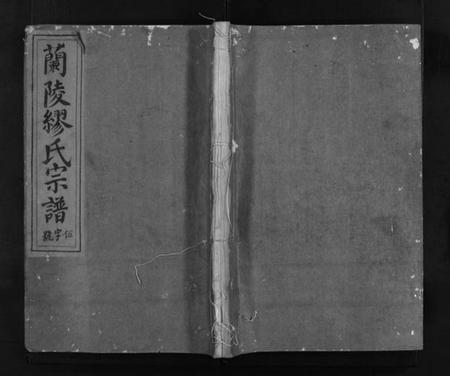 蘭陵繆氏宗譜
字號